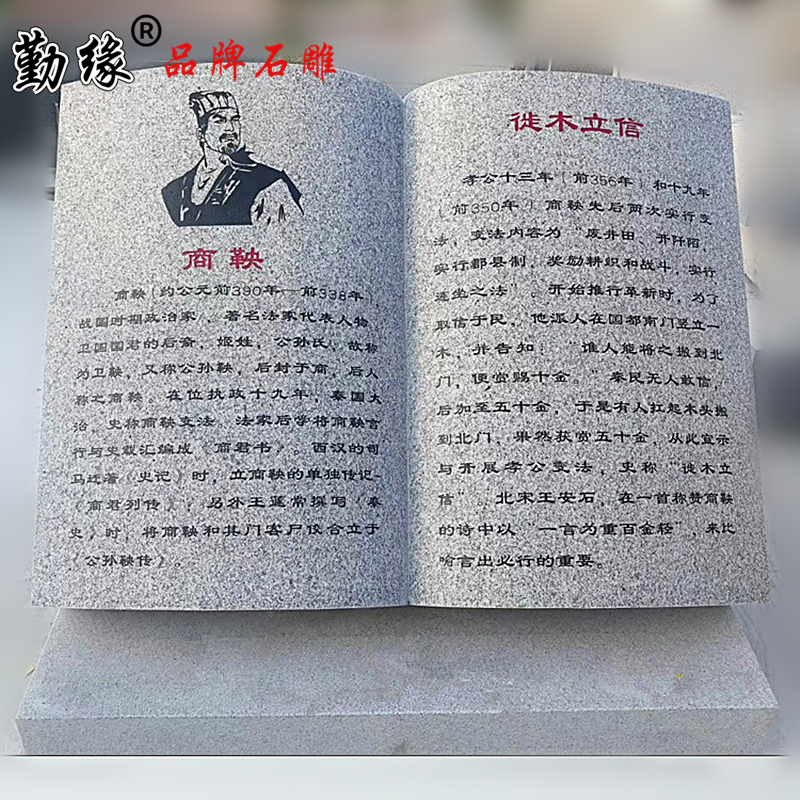 勤缘®
品牌石雕
商鞅
商鞅（约公元前390年—前338年），
战国时期政治家、著名法家代表人物，
卫国国君的后裔，姬姓，公孙氏，故称
为卫鞅，又称公孙鞅，后封于商，后人
称之商鞅。在位执政十九年，秦国大
治，史称商鞅变法。法家后学将商鞅言
行与史载汇编成《商君书》。西汉的司
马迁著《史记》时，立商鞅的单独传记-
《商君列传》，另外王蘧常撰写《秦
史》时，将商鞅和其门客尸佼合立于
《公孙鞅传》.
徙木立信
孝公十三年（前356年）和十九年
（前350年）商鞅先后两次实行变
法，变法内容为“废井田、开阡陌，
实行郡县制，奖励耕织和战斗，实行
连坐之法”。开始推行革新时，为了
取信于民，他派人在国都南门竖立一
木，并告知：“谁人能将之搬到北
门，便赏赐十金。”秦民无人敢信，
后加至五十金，于是有人扛起木头搬
到北门，果然获赏五十金，从此宣示
与开展孝公变法，史称“徙木立
信”。北宋王安石，在一首称赞商鞅
的诗中以“一言为重百金轻”，来比
喻言出必行的重要。